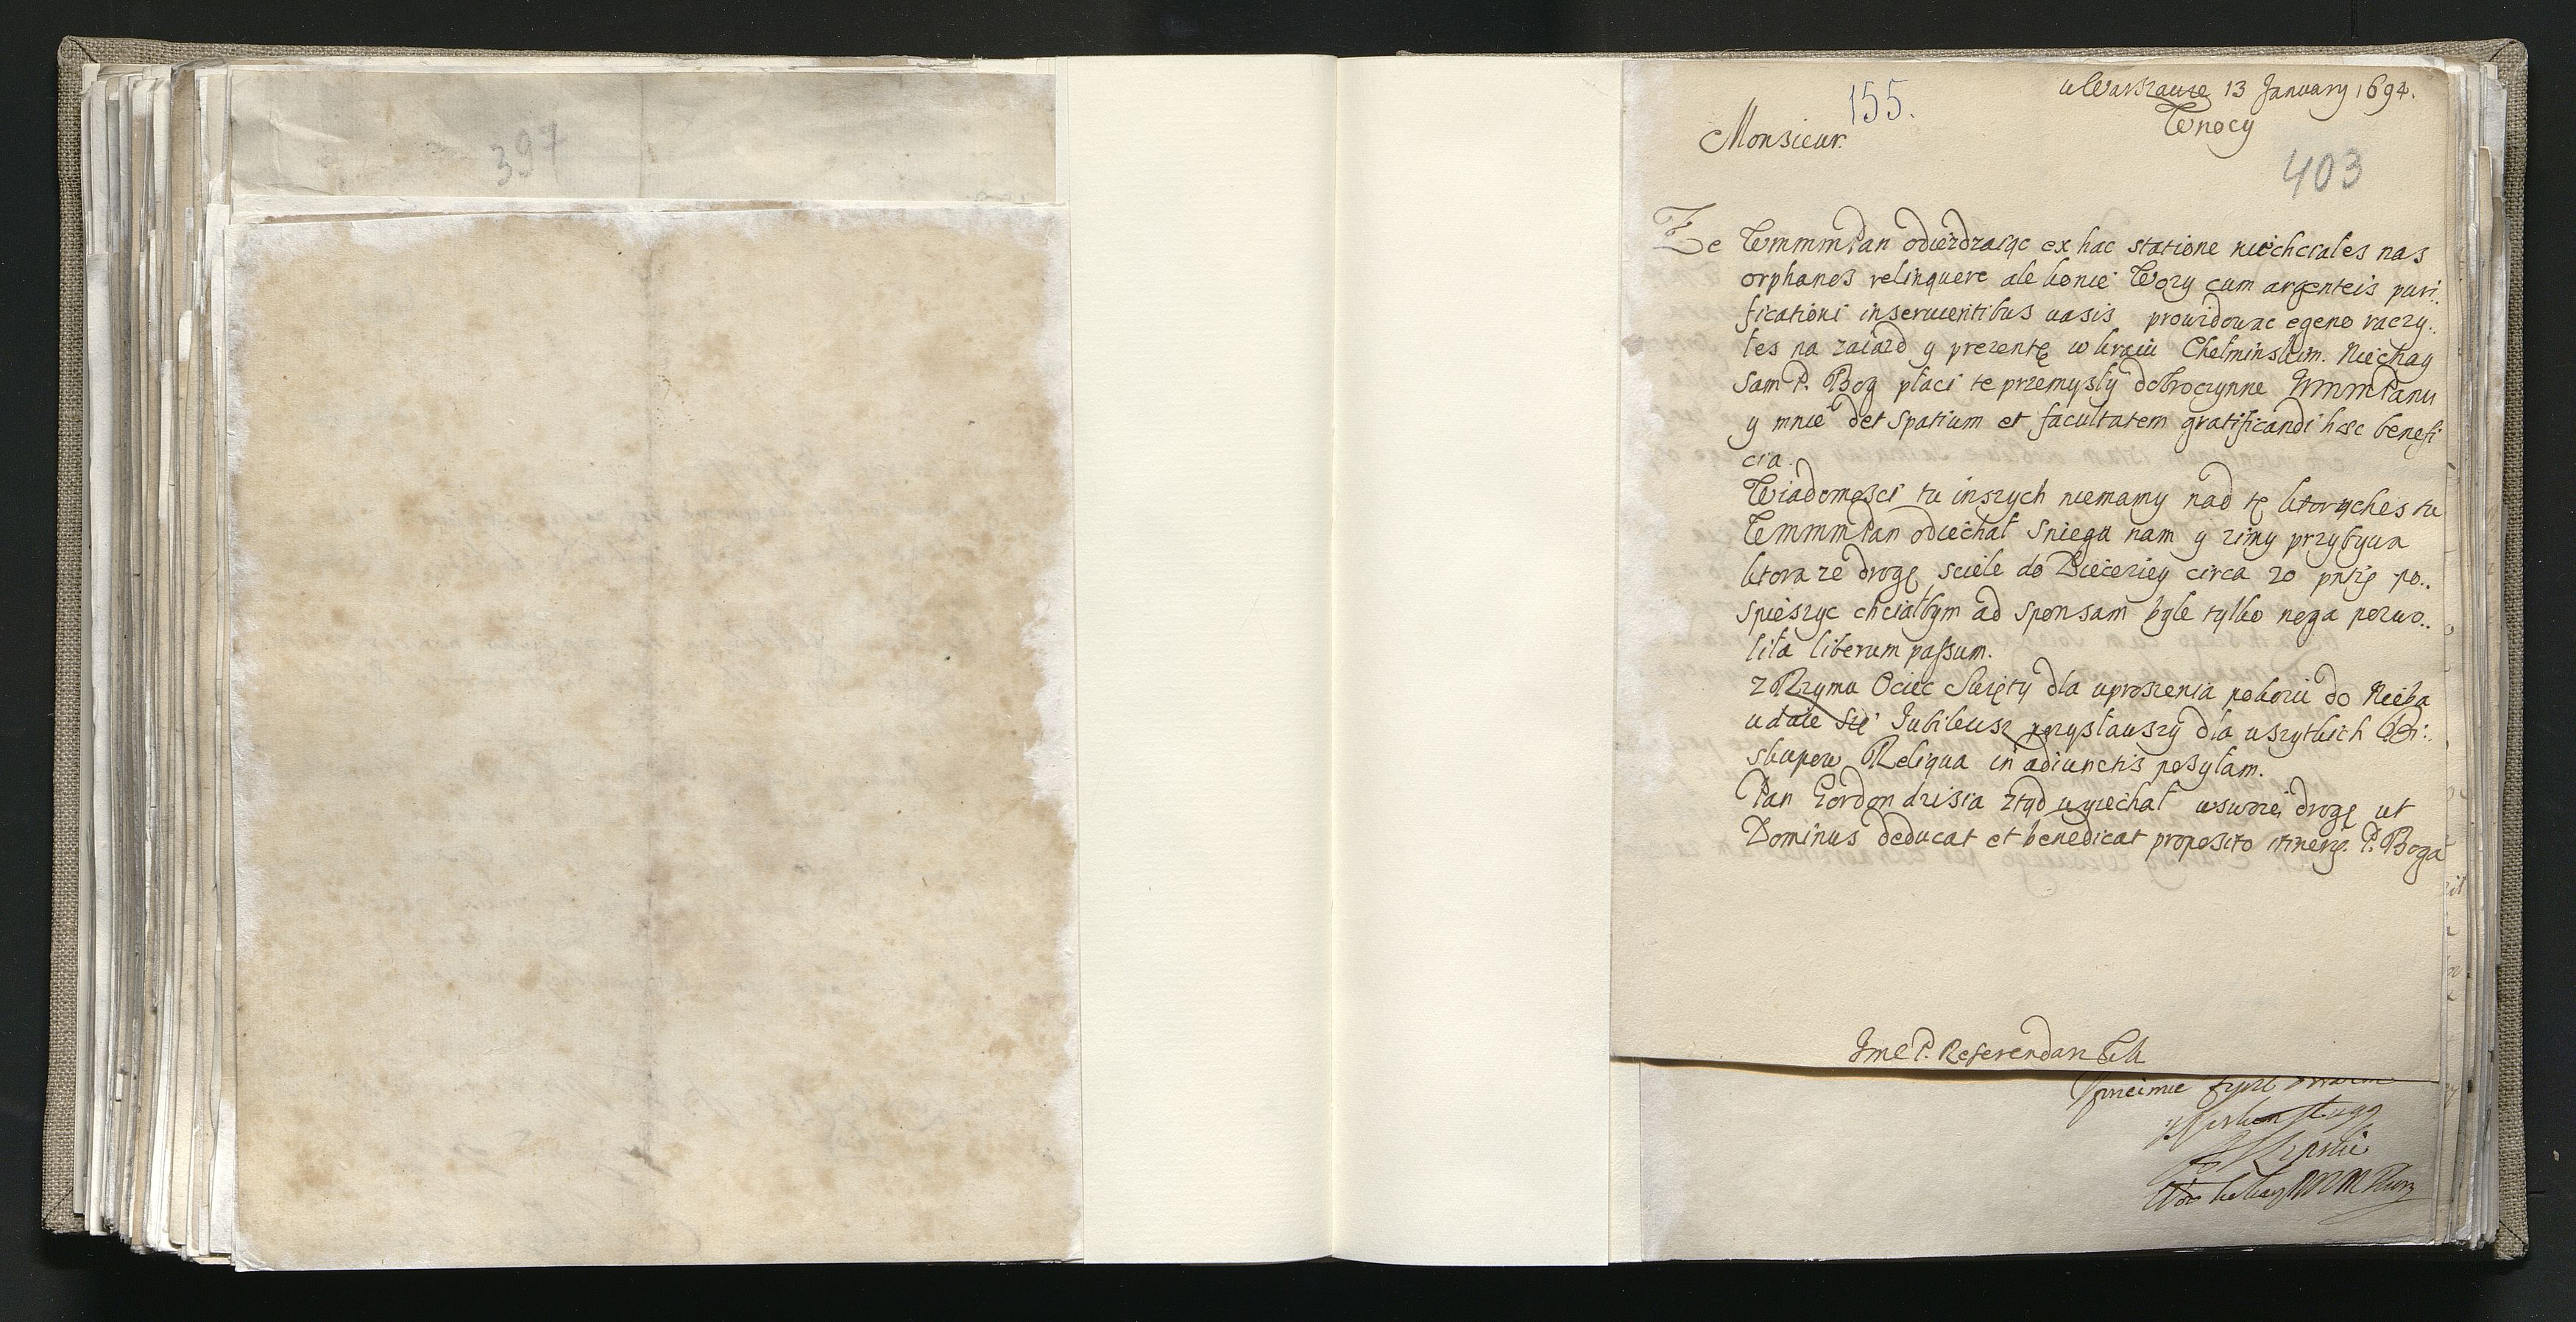 397
155.
w Warszawie 13 January 1694.
W nocy
Monsieur.
403
Że Wmmmpan odieżdzaiąc ex hac statione niechciałes nas
orphanos relinquere ale konie Wozy cum argenteis puri..
ficationi inseruientibus uasis prouidowac egeno raczy..
łes na zaiazd y prezentę w kraiu Chełminskim. Niechay
sam P. Bog płaci te przemysły dobroczynne Wmmmpanu
y mnie det spatium et facultatem gratificandi hæc benefi
cia.
Wiadomosci tu inszych niemamy nad te ktorychęs tu
Wmmmpan odiechał Sniegu nam y zimy przybywa
ktora ze drogę sciele do Dieceziey circa 20 pntis po..
spieszyc chciałbym ad sponsam byle tylko noga pozwo..
liła liberum passum.
z Rzymu Ociec Swięty dla uproszenia pokoiu do Nieba
udaie się Jubileusz przysławszy dla wszytkich Bi..
skupow Reliqua in adiunctis posyłam.
Pan Gordon dzisia ztąd wyiechał w swoię drogę ut
Dominus deducat et benedicat proposito itineri. P. Boga
Jmc P. Referendarz